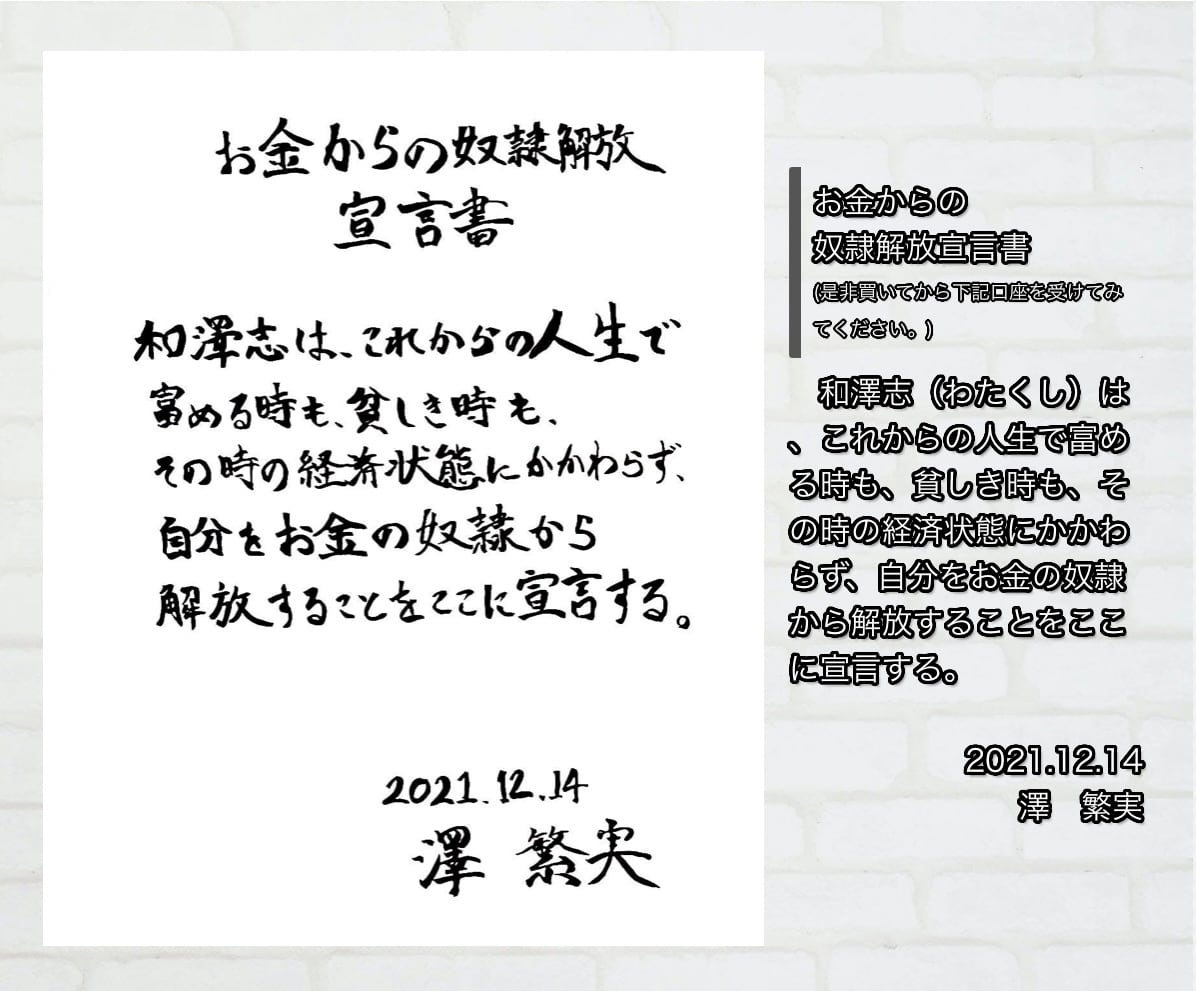 お金からの奴隷解放
宣言書
和澤志は、これからの人生で
富める時も、貧しき時も、
その時の経済状態にかかわらず、
自分をお金の奴隷から
解放することをここに宣言する。
2021.12.14
澤 繁実
お金からの
奴隷解放宣言書
(是非買いてから下記口座を受けてみ
てください。)
和澤志（わたくし）は
、これからの人生で富め
る時も、貧しき時も、そ
の時の経済状態にかかわ
らず、自分をお金の奴隷
から解放することをここ
に宣言する。
2021.12.14
澤　繁実